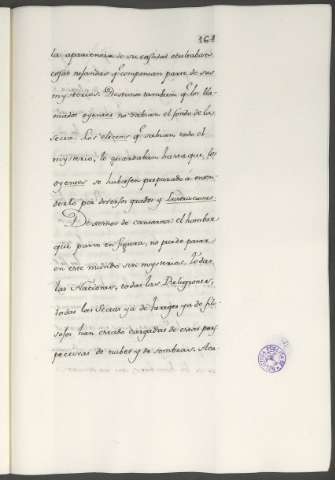 161
la apariencia de su castidad ocultaban
cosas nefandas q.e componian parte de sus
mysterios. Decimos tambien q.e los lla-
mados oyentes no sabian el fondo de la
secta. Los electos q.e sabian todo el
mysterio, le guardaban hasta que, los
oyentes se hubiesen preparado à enten-
derlo por diversos grados y Instrucciones.
Desvernos de cansarnos: el hombre
que passa en figura, no puede pasar
en este mundo sin mysterios, todas
las Naciones, todas las Religiones,
todas las Sectas ya de hereges ya de filo-
sofos han estado cargadas de estas pers-
pectivas de nubes y de sombras. Aca-